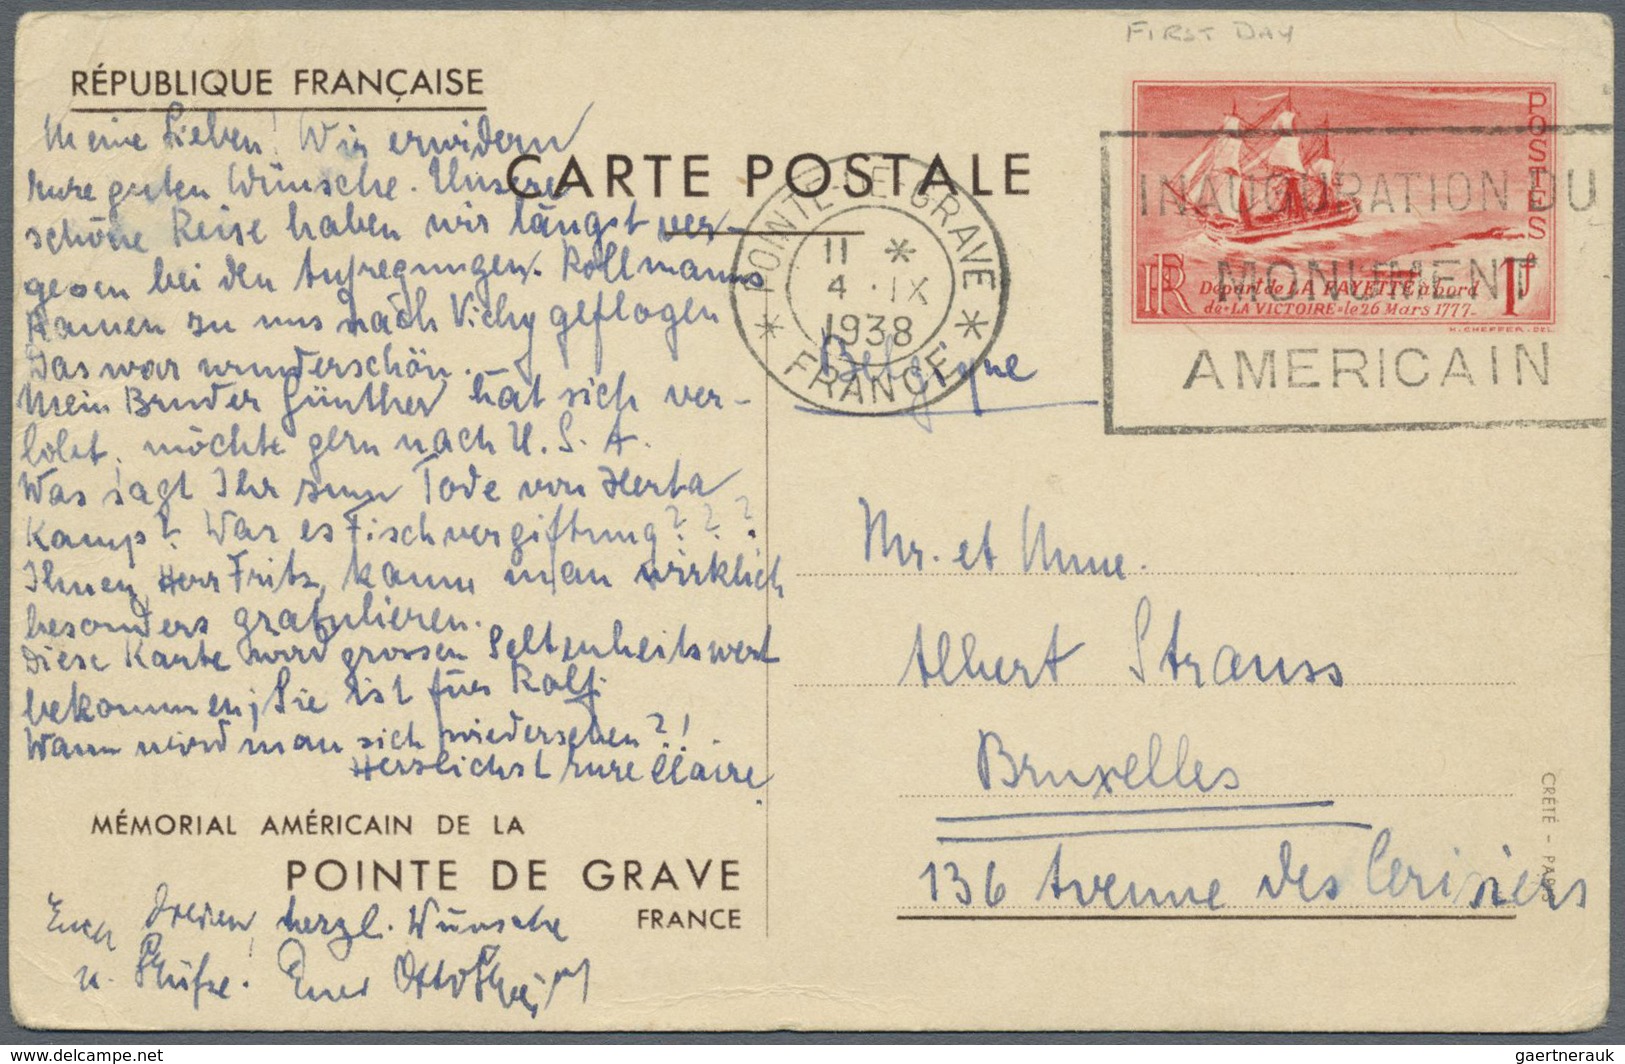 FIRST DAY
RÉPUBLIQUE FRANÇAISE
CARTE POSTALE
Meine Lieben! Wir erwidern
Eure guten Wünsche. Unsere
schöne Reise haben wir längst ver-
gessen bei den Aufregungen. Rollmanns
kamen zu uns nach Vichy geflogen
Das war wunderschön.
Mein Bruder Günther hat sich ver-
lobt, möchte gern nach U.S.A.
Was sagt Ihr zum Tode von Herta
Kamp? War es Fischvergiftung???
Ihnen, Herr Fritz, kann man wirklich
besonders gratulieren.
Diese Karte wird grossen Seltenheitswert
bekommen; Sie ist für Rolf.
Wann wird man sich wiedersehen?!
Herzlichst Eure Claire
MÉMORIAL AMÉRICAIN DE LA
POINTE DE GRAVE
FRANCE
Euch Dreien, herzl. Wünsche
u. Grüße. Euer Otto
POINTE-DE-GRAVE
11 *
4 · IX
1938
* FRANCE *
POSTES
RF
Départ de LA FAYETTE à bord
de "LA VICTOIRE" le 26 Mars 1777.
1F
H. CHEFFER. DEL.
INAUGURATION DU
MONUMENT
AMERICAIN
Belgique
Mr. et Mme.
Albert Strauss
Bruxelles
136 Avenue des Cerisiers
CRÉTÉ - PARIS
www.delcampe.net
gaertnerauk